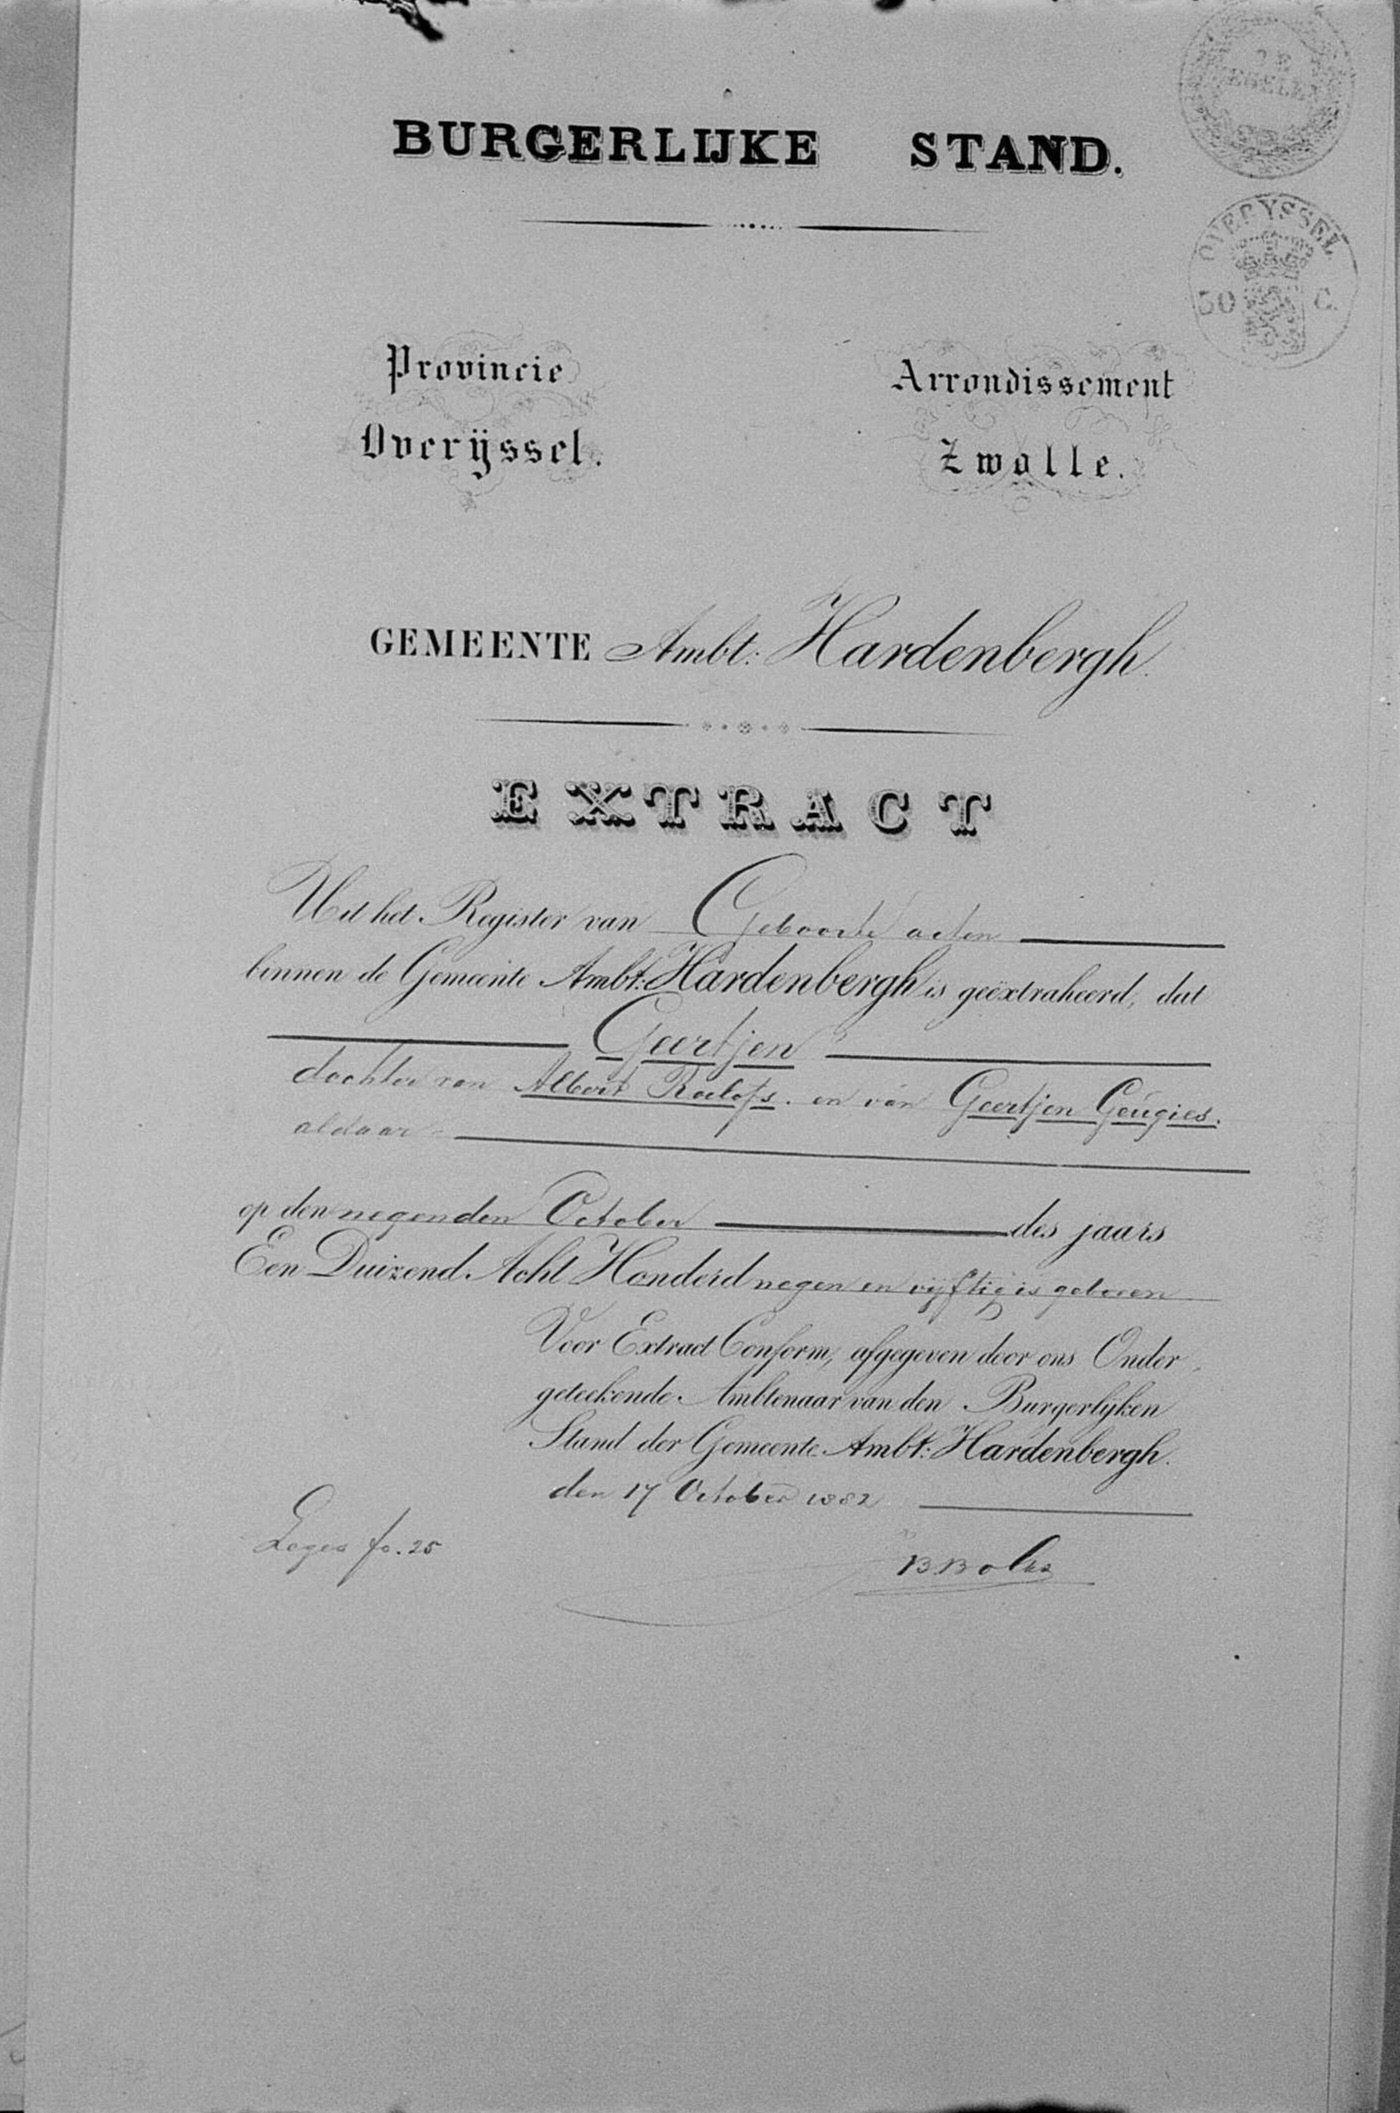 BURGERLIJKE STAND.
OVERYSSEL
30 C.
Provincie
Overijssel.
Arrondissement
Zwolle.
GEMEENTE Ambt: Hardenbergh.
EXTRACT
Uit het Register van Geboorte acten
binnen de Gemeente Ambt: Hardenbergh is geëxtraheerd, dat
Geertjen
dochter van Albert Roelofs. en van Geertjen Geugies.
aldaar
op den negenden October des jaars
Een Duizend Acht Honderd negen en vijftig is geboren
Voor Extract Conform, afgegeven door ons Onder
geteekende Ambtenaar van den Burgerlijken
Stand der Gemeente Ambt: Hardenbergh.
den 17 October 1882
Leges fo. 25